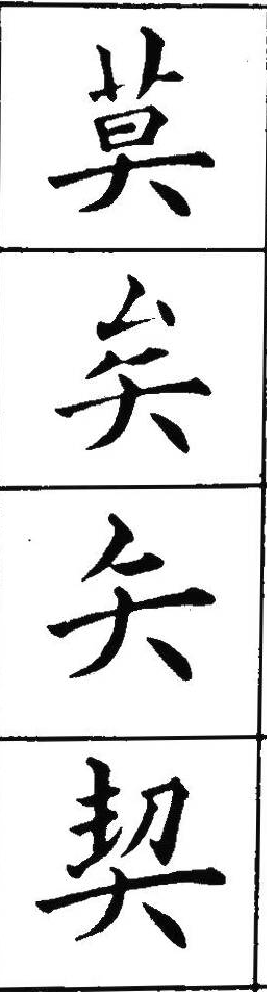 莫
矣
矢
契